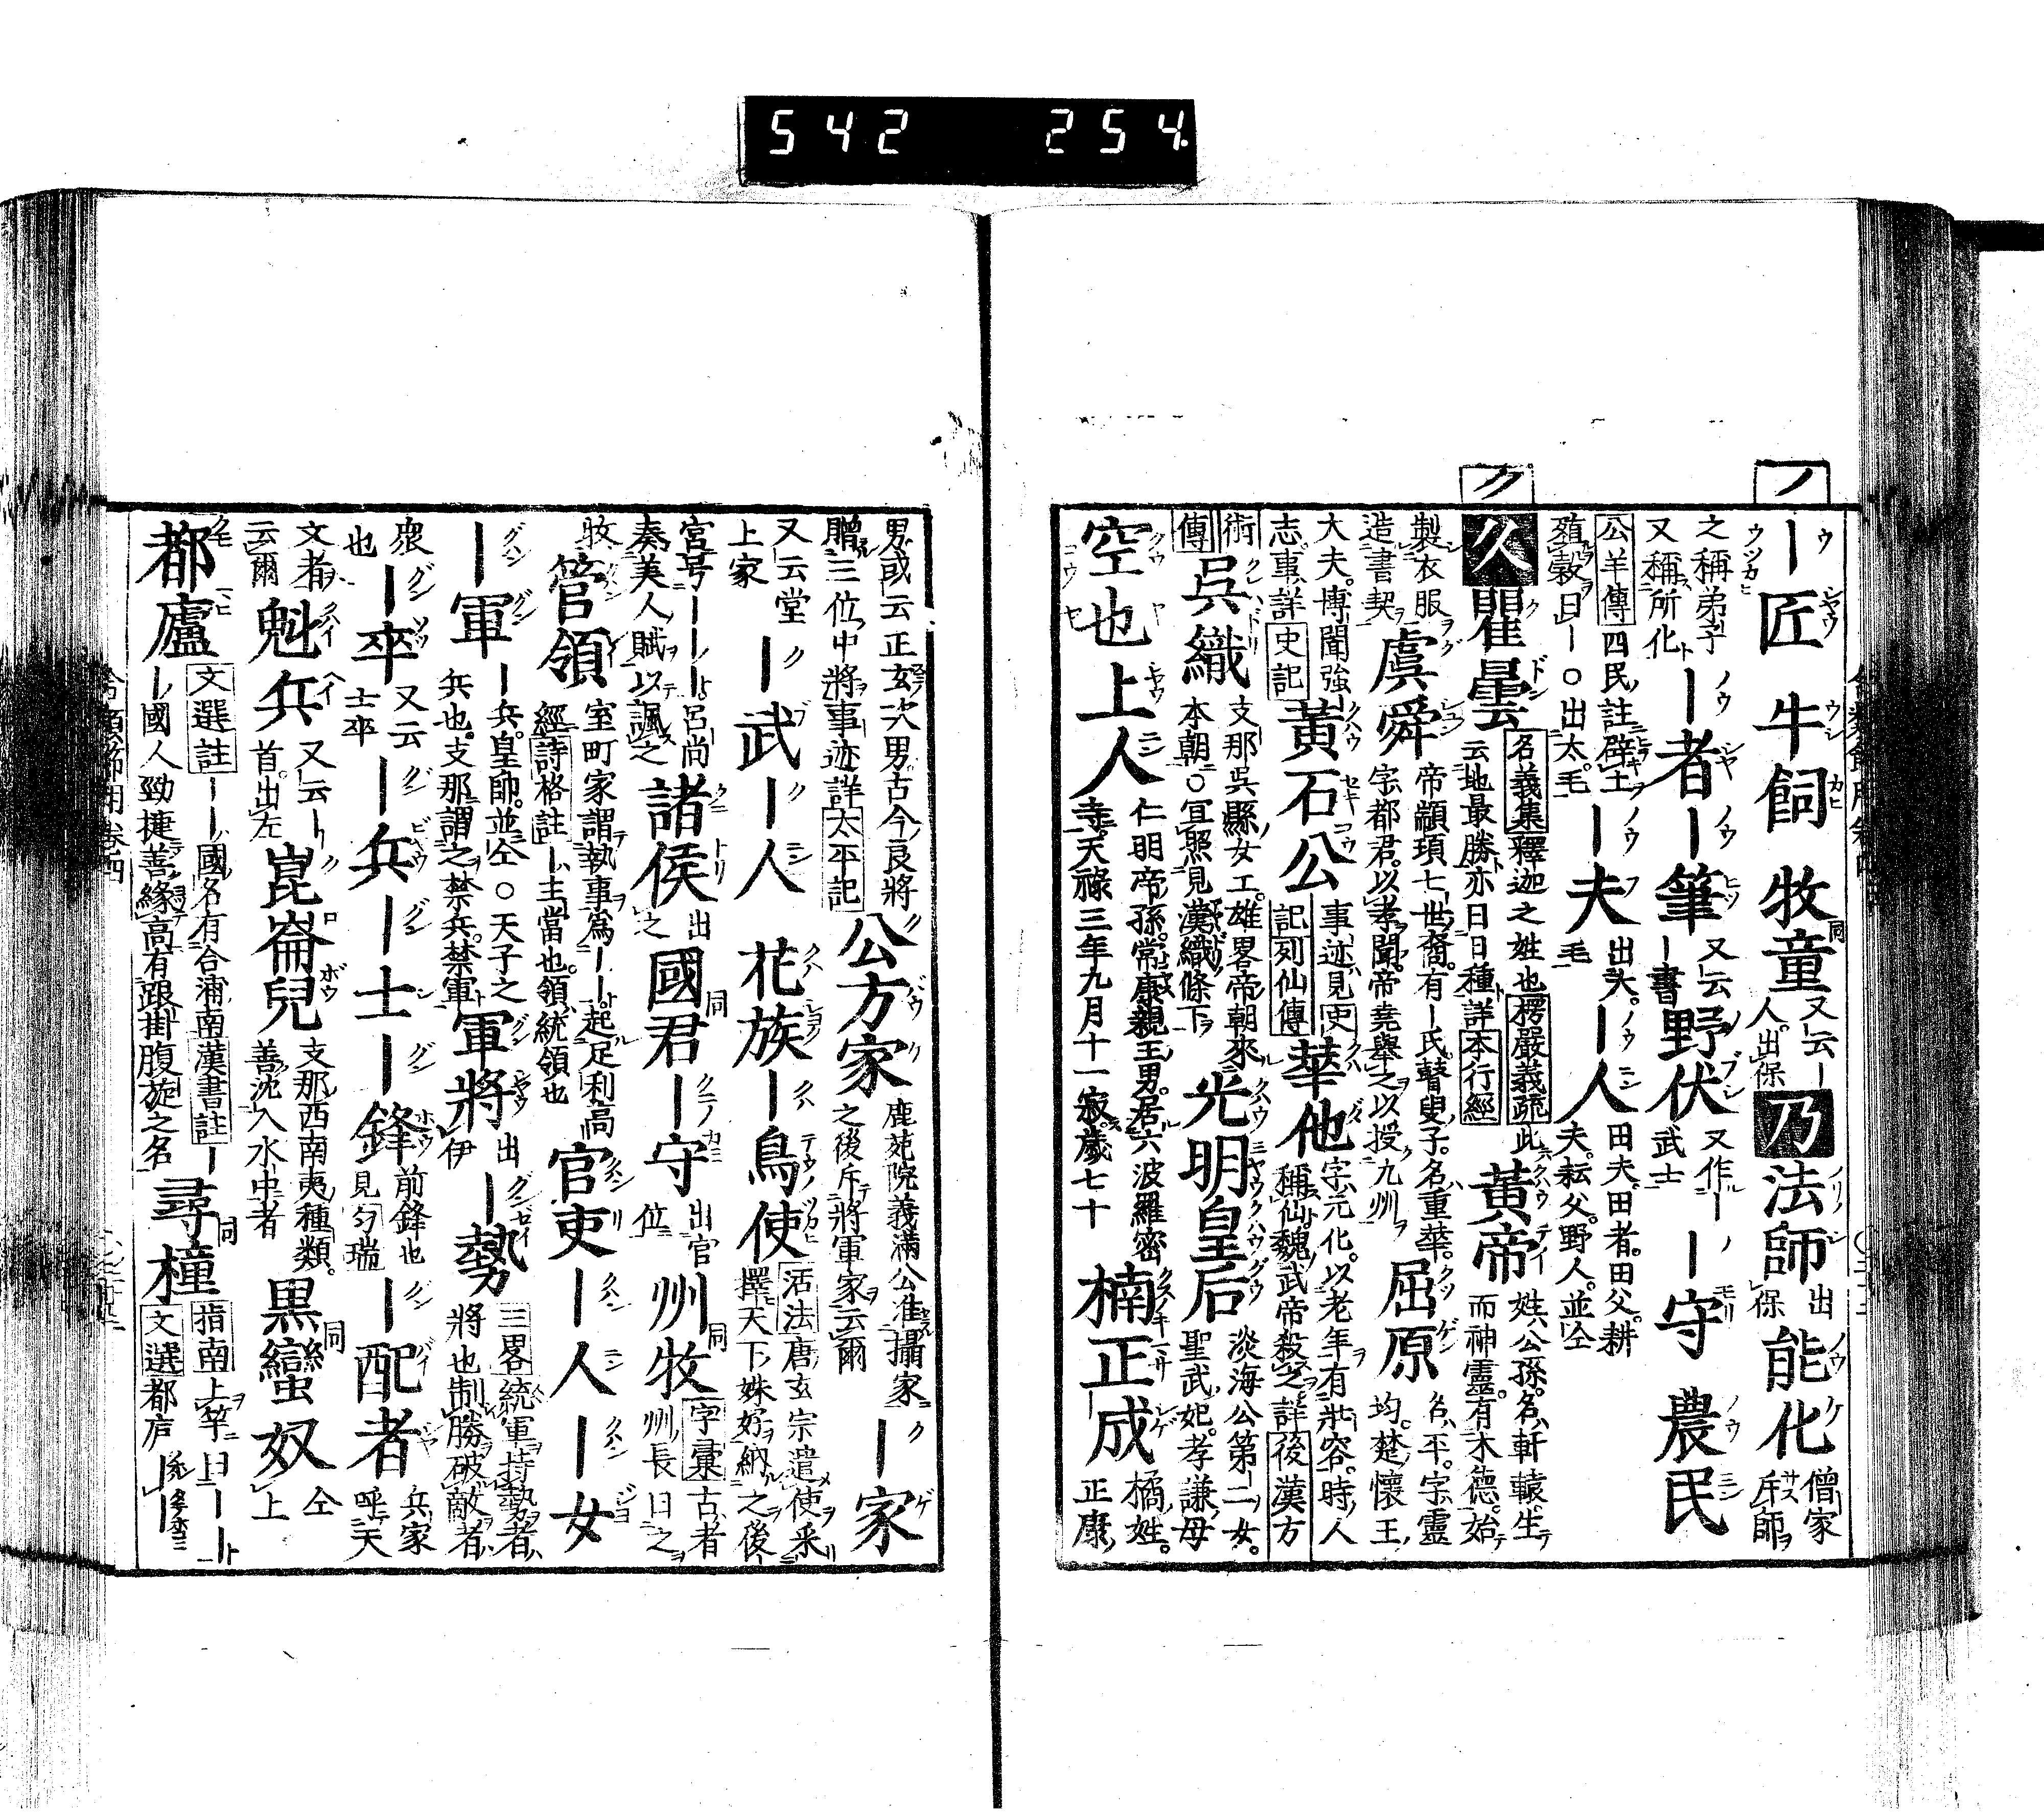 542 254.
ノ
ク
｜匠 牛飼 牧童 又云｜人出保 乃 法師 出保 能化 僧家斥師
之稱弟子又稱所化 ｜者 ｜筆 又云｜書 野伏 又作｜武士 ｜守 農民
公羊傳 四民註辟土殖穀曰｜○出太毛 ｜夫 出矢毛 ｜人 田夫田者田父耕夫耘父野人並仝
久 瞿曇 名義集 釋迦之姓也 楞嚴義疏 此云地最勝亦曰日種詳 本行經 黃帝 姓公孫名軒轅生而神靈有木德始
製衣服造書契 虞舜 帝顓頊七世裔有｜氏瞽叟子名重華字都君以孝聞帝堯舉之以授九州 屈原 名平字靈均楚懷王
大夫博聞強志事詳 史記 黃石公 事迹見 史記 列仙傳 華他 字元化以老年有壯容時人稱仙魏武帝殺之詳 後漢方
術傳 吳織 支那吳縣女工雄畧帝朝來本朝○宜照見漢織條下 光明皇后 淡海公第二女聖武妃孝謙母
空也上人 仁明帝孫常康親王男居六波羅密寺天祿三年九月十一寂歲七十 楠正成 橘姓正康
男或云正玄次男古今良將贈三位中將事迹詳 太平記 公方家 鹿苑院義滿公准攝家之後斥將軍家云爾 ｜家
又云堂上家 ｜武 ｜人 花族 ｜鳥使 活法 唐玄宗遣使采擇天下姝好納之後
宮号｜｜｜呂尚奏美人賦以諷之 諸侯 出之 國君 ｜守 出官位 州牧 字彙 古者州長曰之
牧 管領 室町家謂執事爲｜｜起足利高經 詩格註 ｜主當也領統領也 官吏 ｜人 ｜女
｜軍 ｜兵皇師並仝○天子之兵也支那謂之禁兵禁軍 軍將 出伊 ｜勢 三畧 統軍持勢者將也制勝破敵者
衆也 ｜卒 又云士卒 ｜兵 ｜士 ｜鋒 前鋒也見勾瑞 ｜配者 兵家呼天
文者云爾 魁兵 又云｜首出左 崑崙兒 支那西南夷種類善沈入水中者 黒蠻奴 仝上
都廬 文選註 ｜｜國名有合浦南 漢書註 ｜｜國人勁捷善緣高有跟掛腹旋之名 尋橦 指南 上竿曰｜｜ 文選 都庐